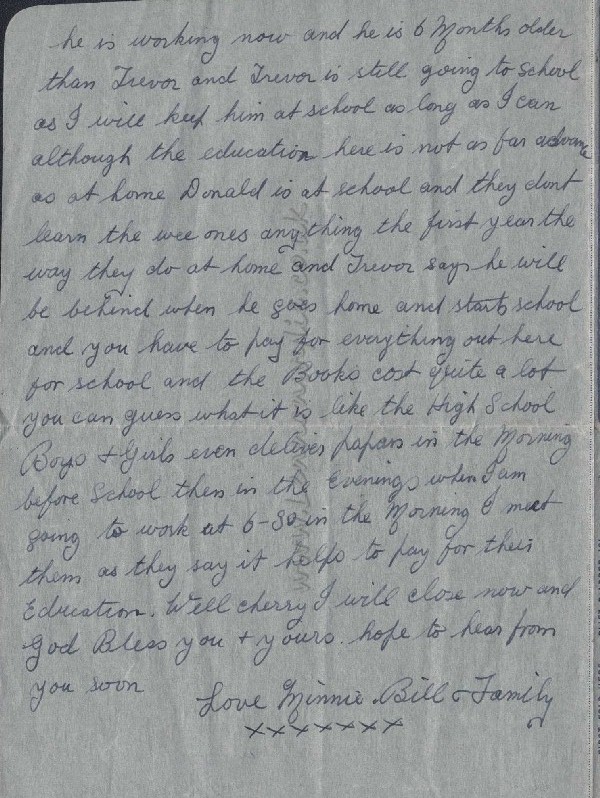 he is working now and he is 6 Months older
than Trevor and Trevor is still going to School
as I will keep him at school as long as I can
although the education here is not as far advance
as at home Donald is at school and they dont
learn the wee ones any thing the first year the
way they do at home and Trevor says he will
be behind when he goes home and starts school
and you have to pay for everything out here
for school and the Books cost quite a lot
you can guess what it is like the High School
Boys + Girls even deliver papers in the Morning
before School then in the Evenings when I am
going to work at 6-30 in the Morning I meet
them as they say it helps to pay for their
Education. Well cherry I will close now and
God Bless you + yours. hope to hear from
you soon
Love Minnie Bill + Family
xxxxxxx